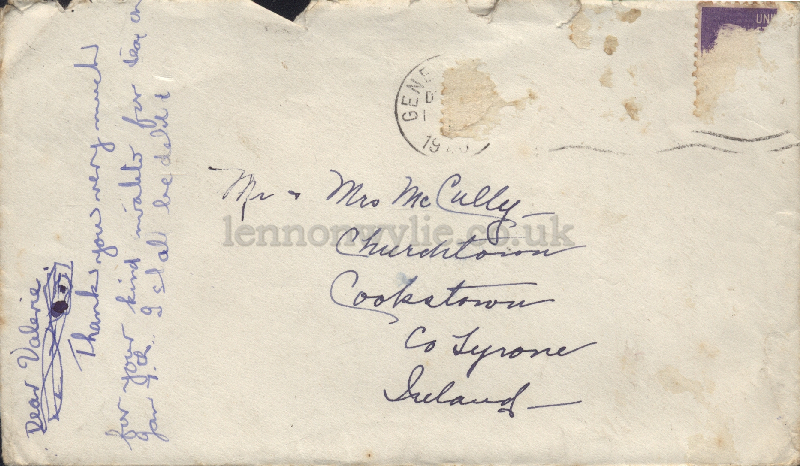 UNI
GENE
19
Mr & Mrs McCully
Churchtown
Cookstown
Co Tyrone
Ireland
lennonwylie.co.uk
Dear Valerie
Thank you very much
for your kind for tea on
Jan I shal be